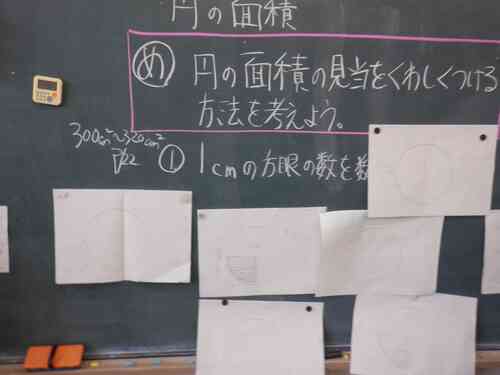 円の面積
め 円の面積の見当をくわしくつける
方法を考えよう。
300cm²～320cm²
① 1cmの方眼の数を数